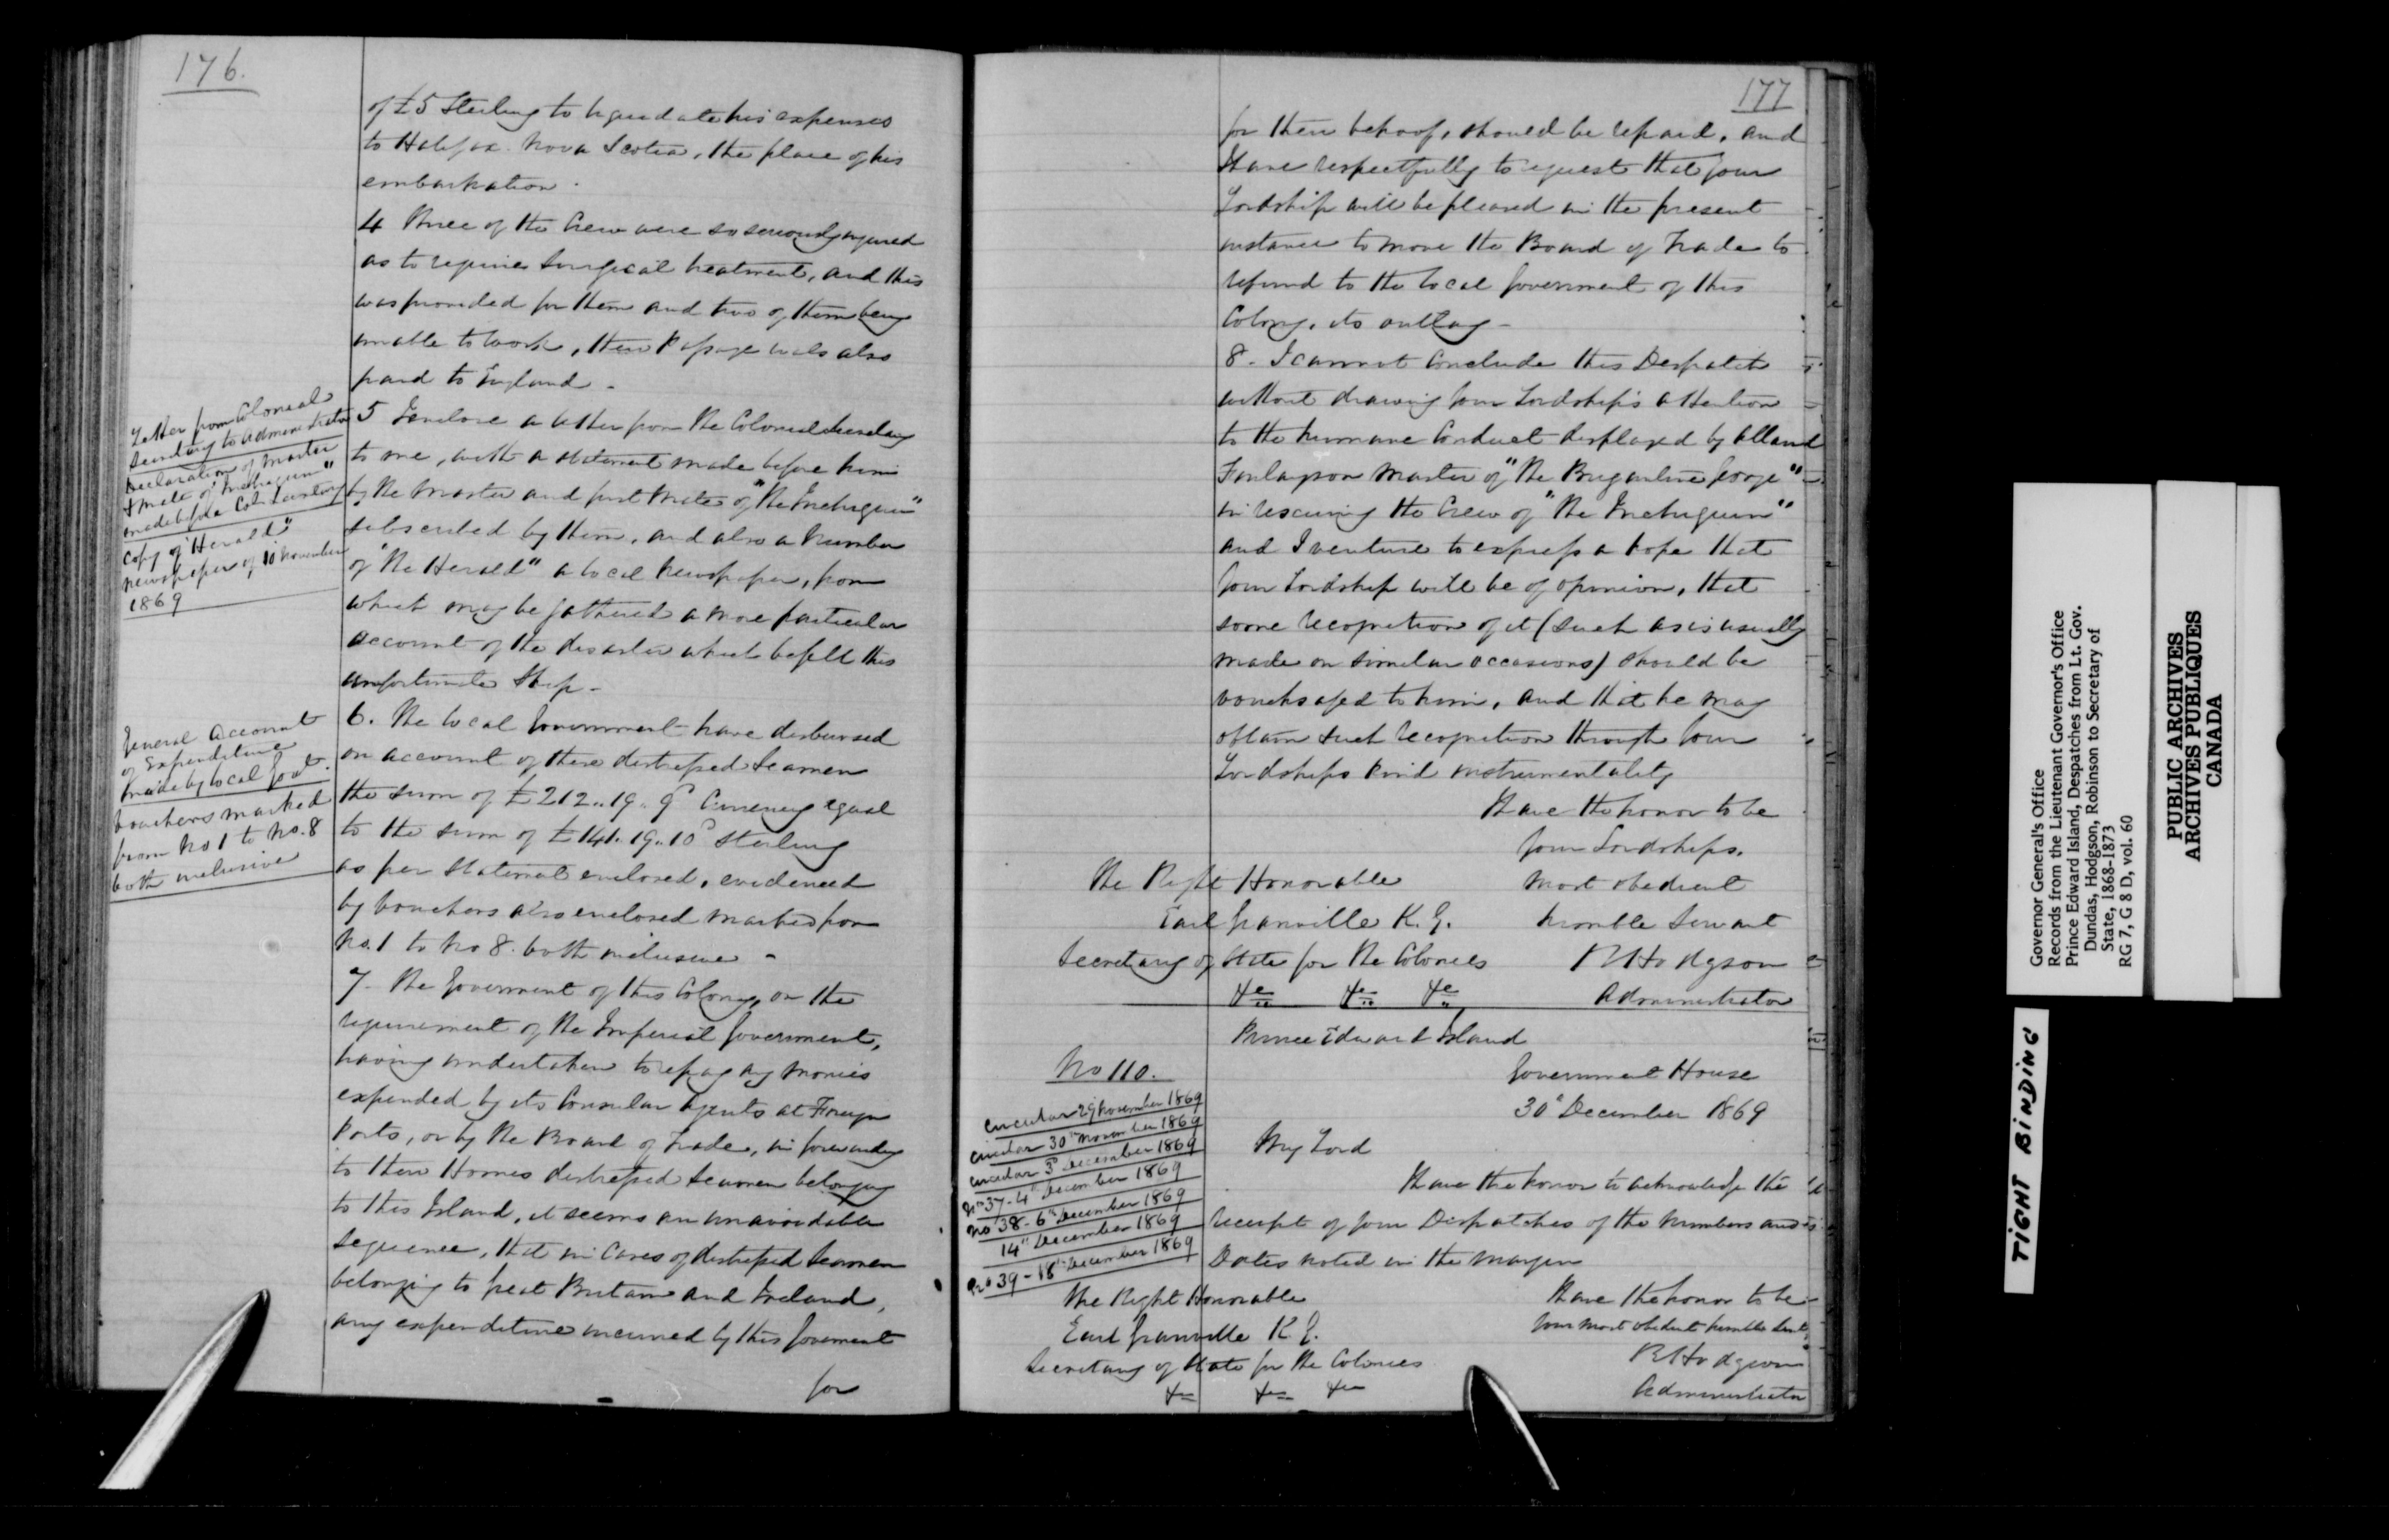 176.
of £5 Sterling to liquidate his expenses
to Halifax Nova Scotia, the place of his
embarkation.
4 Three of the Crew were so seriously injured
as to require Surgical treatment, and this
was provided for them and two of them being
unable to work, their Passage was also
paid to England -
Letter from Colonial
Secretary to Administrator
Declaration of Master
& Mate of "Inchiquin"
made before Col. Secretary
Copy of "Herald"
newspaper of 10 November
1869
5 I enclose a letter from the Colonial Secretary
to me, with a statement made before him
by the Master and first Mate of "the Inchiquin"
subscribed by them, and also a Number
of "the Herald" a local Newspaper, from
which may be gathered a more particular
account of the disaster which befell this
unfortunate Ship -
General Account
of Expenditure
made by local Govt.
Vouchers marked
from No 1 to No. 8
both inclusive
6. The local Government have disbursed
on account of these distressed Seamen
the sum of £212..19..9d Currency equal
to the sum of £141.19..10d Sterling
as per Statement enclosed, evidenced
by vouchers also enclosed marked from
No. 1 to No 8. both inclusive -
7- The Government of this Colony, on the
requirement of the Imperial Government,
having undertaken to repay any monies
expended by its Consular Agents at Foreign
Ports, or by the Board of Trade, in forwarding
to their Homes distressed Seamen belonging
to this Island, it seems an unavoidable
sequence, that in Cases of distressed Seamen
belonging to Great Britain and Ireland,
any expenditure incurred by this Goverment
for
177
for their behoof, should be repaid, and
I have respectfully to request that your
Lordship will be pleased in the present
instance to move the Board of Trade to
refund to the local Government of this
Colony, its outlay -
8- I cannot conclude this Despatch
without drawing your Lordship's attention
to the humane Conduct displayed by
Finlayson Master of "the Brigantine George"
in rescuing the Crew of "the Inchiquin"
and I venture to express a hope that
your Lordship will be of opinion, that
some recognition of it (such as is usually
made on similar occasions) should be
vouchsafed to him, and that he may
obtain such recognition through your
Lordships kind instrumentality
I have the honor to be
Your Lordships.
most obedient
humble Servant
R Hodgson
Administrator
The Right Honorable
Earl Granville K. G.
Secretary of State for the Colonies
&c &c &c
Prince Edward Island
No 110.
Government House
30th December 1869
Circular 29 November 1869
Circular 30th November 1869
Circular 3d December 1869
No 37- 4th December 1869
No 38- 6th December 1869
14th December 1869
No 39 - 18th December 1869
My Lord
I have the honor to acknowledge the
receipt of your Dispatches of the numbers and
Dates noted in the margin
I have the honor to be
Your most obedient humble Servt
R Hodgson
Administrator
The Right Honorable
Earl Granville K. G.
Secretary of State for the Colonies
&c &c &c
Governor General's Office
Records from the Lieutenant Governor's Office
Prince Edward Island, Despatches from Lt. Gov.
Dundas, Hodgson, Robinson to Secretary of
State, 1868-1873
RG 7, G 8 D, vol. 60
PUBLIC ARCHIVES
ARCHIVES PUBLIQUES
CANADA
TIGHT BINDING